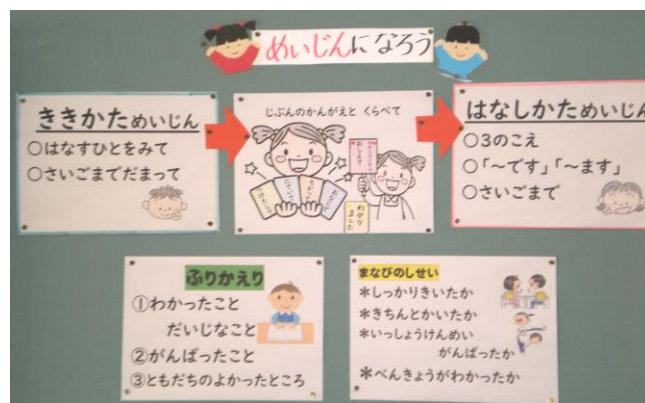 めいじんになろう
ききかためいじん
○はなすひとをみて
○さいごまでだまって
じぶんのかんがえと くらべて
わかりました
はなしかためいじん
○3のこえ
○「~です」「~ます」
○さいごまで
ふりかえり
①わかったこと
だいじなこと
②がんばったこと
③ともだちのよかったところ
まなびのしせい
*しっかりきいたか
*きちんとかいたか
*いっしょうけんめい
がんばったか
*べんきょうがわかったか